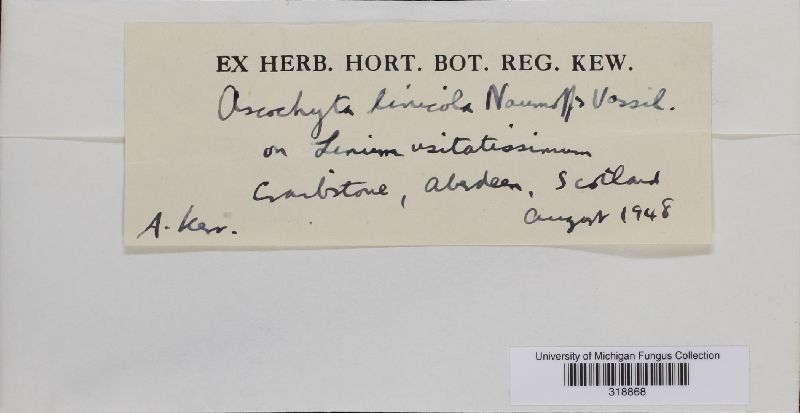 EX HERB. HORT. BOT. REG. KEW.
Ascochyta linicola Naumoff & Vassil.
on Linum usitatissimum
Craibstone, Aberdeen, Scotland
A. Kerr.
August 1948
University of Michigan Fungus Collection
318868